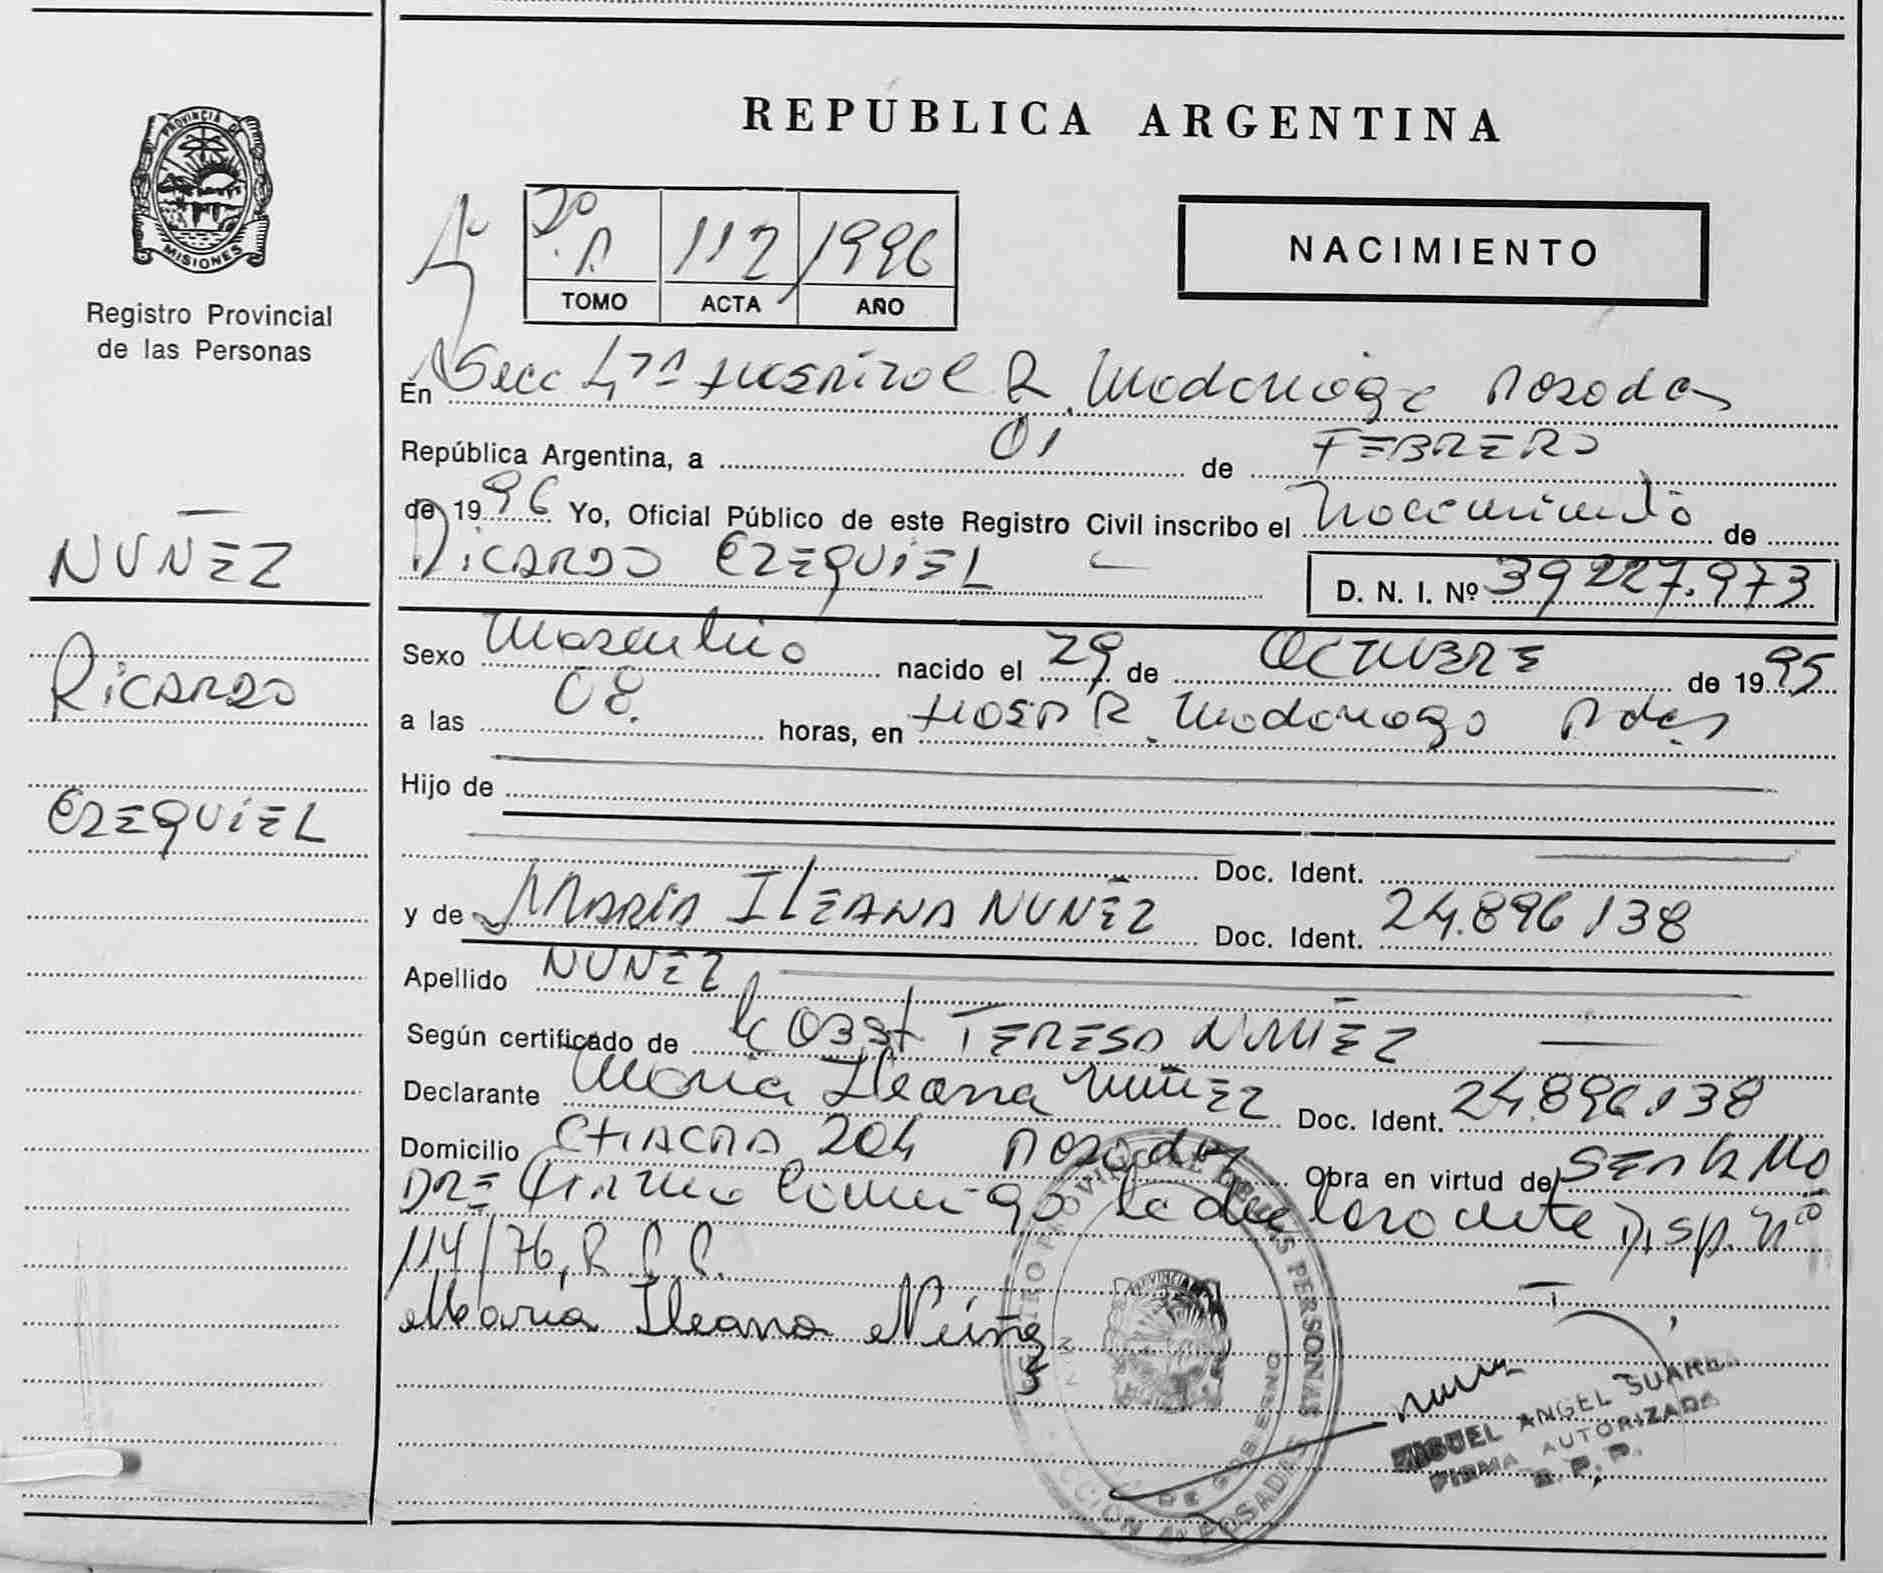 PROVINCIA DE
MISIONES
Registro Provincial
de las Personas
NUÑEZ
Ricardo
EZEQUIEL
REPUBLICA ARGENTINA
TOMO 112 ACTA 1996 AÑO
NACIMIENTO
En Secc 4ta Hospital R. Madariaga Posadas
República Argentina, a 01 de FEBRERO
de 1996 Yo, Oficial Público de este Registro Civil inscribo el nacimiento de
RICARDO EZEQUIEL D. N. I. Nº 39227.973
Sexo Masculino nacido el 29 de OCTUBRE de 1995
a las 08. horas, en Hosp R. Madariaga Pdas
Hijo de
Doc. Ident.
y de MARÍA ILEANA NUÑEZ Doc. Ident. 24.896.138
Apellido NUÑEZ
Según certificado de la Obst TERESA NUÑEZ
Declarante Maria Ileana Nuñez Doc. Ident. 24.896.138
Domicilio CHACRA 204 Posadas Obra en virtud de ser la Ma
DRE Firma conmigo la declarante Disp. Nº
114/76, R.P.P.
Maria Ileana Núñez
REGISTRO PROVINCIAL DE LAS PERSONAS
PROVINCIA
DE GOBERNO
POSADAS
MIGUEL ANGEL SUAREZ
FIRMA AUTORIZADA
R. P. P.